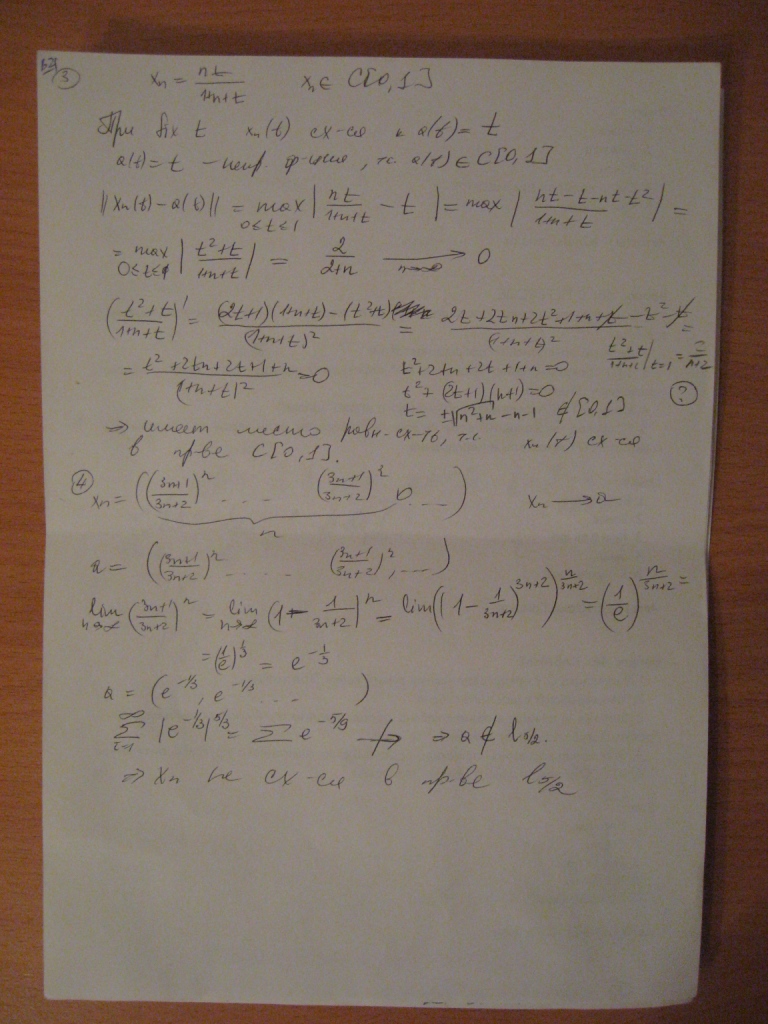 ③ xₙ = nt/(1+n+t)   xₙ ∈ C[0,1]
При fix t   xₙ(t) сх-ся к a(t) = t
a(t) = t – непр. ф-ция, т.е. a(t) ∈ C[0,1]
||xₙ(t) – a(t)|| = max_{0≤t≤1} | nt/(1+n+t) – t | = max | (nt – t – nt – t²)/(1+n+t) | =
= max_{0≤t≤1} | (t²+t)/(1+n+t) | = 2/(2+n) →_{n→∞} 0
((t²+t)/(1+n+t))' = ((2t+1)(1+n+t) – (t²+t))/(1+n+t)² = (2t+2tn+2t²+1+n+t – t² – t)/(1+n+t)² =
= (t²+2tn+2t+1+n)/(1+n+t)² = 0   t²+2tn+2t+1+n=0   (t²+t)/(1+n+t)|_{t=1} = 2/(n+2)
t² + (2t+1)(n+1) = 0   ?
t = ±√(n²+n) – n – 1 ∉ [0,1]
⇒ имеет место равн. сх-ть, т.е. xₙ(t) сх-ся
в пр-ве C[0,1].
④ xₙ = (((3n+1)/(3n+2))ⁿ . . . . ((3n+1)/(3n+2))ⁿ, 0 . . . )   xₙ → a
n
a = (((3n+1)/(3n+2))ⁿ . . . . ((3n+1)/(3n+2))ⁿ, . . . )
lim_{n→∞} ((3n+1)/(3n+2))ⁿ = lim_{n→∞} (1 – 1/(3n+2))ⁿ = lim((1 – 1/(3n+2))^{3n+2})^{n/(3n+2)} = (1/e)^{n/(3n+2)} =
= (1/e)^{1/3} = e^{–1/3}
a = (e^{–1/3}, e^{–1/3} . . . )
∑_{i=1}^{∞} |e^{–1/3}|^{5/3} = ∑ e^{–5/9} ↛ ⇒ a ∉ l_{5/2}.
⇒ xₙ не сх-ся в пр-ве l_{5/2}